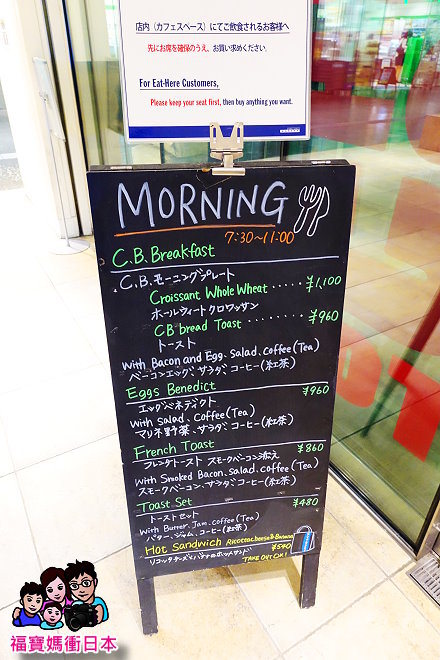 店内（カフェスペース）にてご飲食されるお客様へ
先にお席を確保のうえ、お買い求めください。
For Eat-Here Customers,
Please keep your seat first, then buy anything you want.
MORNING
7:30~11:00
C.B. Breakfast
C.B.モーニングプレート
Croissant Whole Wheat ····· ¥1,100
ホールウィートクロワッサン
CB bread Toast ········ ¥960
トースト
with Bacon and Egg. Salad. Coffee (Tea)
ベーコンエッグ、サラダ、コーヒー(紅茶)
Eggs Benedict ¥960
エッグベネディクト
with Salad. Coffee (Tea)
マリネ野菜、サラダ、コーヒー(紅茶)
French Toast ¥860
フレンチトースト スモークベーコン添え
with Smoked Bacon. Salad. coffee (Tea)
スモークベーコン、サラダ、コーヒー(紅茶)
Toast Set ¥480
トーストセット
with Butter. Jam. coffee (Tea)
バター、ジャム、コーヒー(紅茶)
Hot Sandwich Ricotta cheese & Banana ¥540
リコッタチーズとバナナのホットサンド
TAKE OUT OK!
福寶媽衝日本